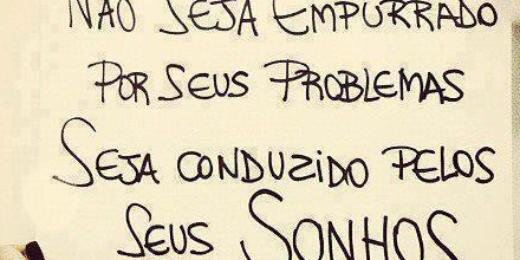 NÃO SEJA EMPURRADO
POR SEUS PROBLEMAS
SEJA CONDUZIDO PELOS
SEUS SONHOS